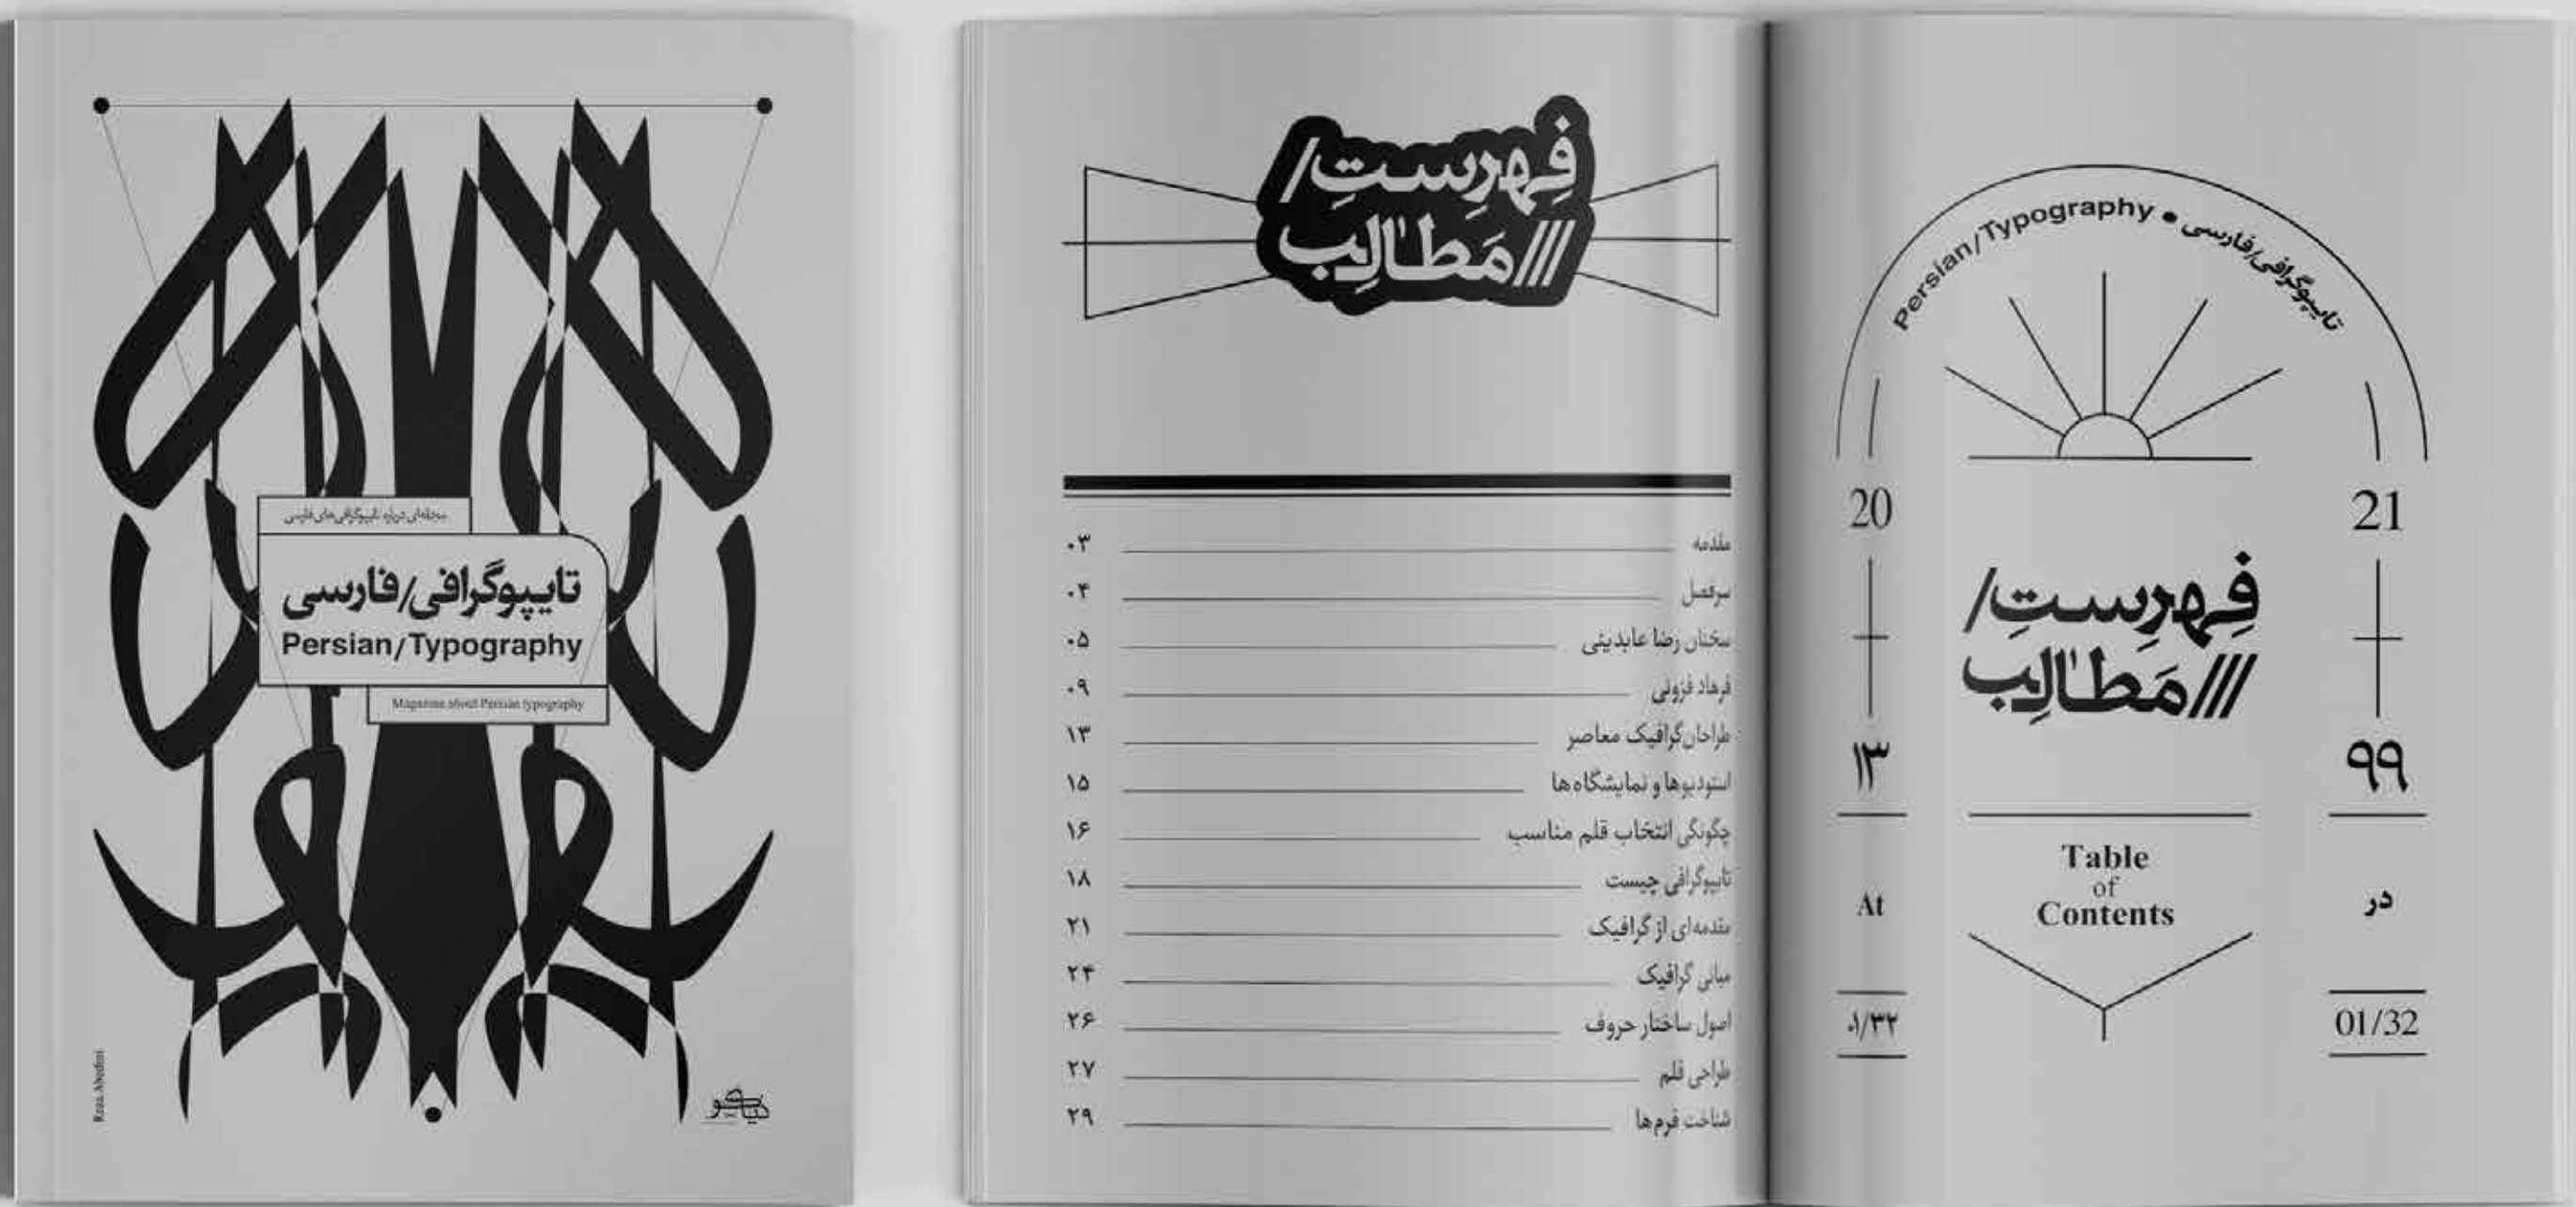 مجله‌ای درباره تایپوگرافی‌های فارسی
تایپوگرافی/فارسی
Persian/Typography
Magazine about Persian typography
Reza Abedini
فِهرِستِ/
///مَطالِب
مقدمه ۰۳
سرفصل ۰۴
سخنان رضا عابدینی ۰۵
فرهاد فزونی ۰۹
طراحان گرافیک معاصر ۱۳
استودیوها و نمایشگاه ها ۱۵
چگونگی انتخاب قلم مناسب ۱۶
تایپوگرافی چیست ۱۸
مقدمه ای از گرافیک ۲۱
مبانی گرافیک ۲۴
اصول ساختار حروف ۲۶
طراحی قلم ۲۷
شناخت فرم ها ۲۹
Persian/Typography • تایپوگرافی/فارسی
20 21
فِهرِستِ/
///مَطالِب
۱۳ ۹۹
Table
of
Contents
At در
۰۱/۳۲ 01/32